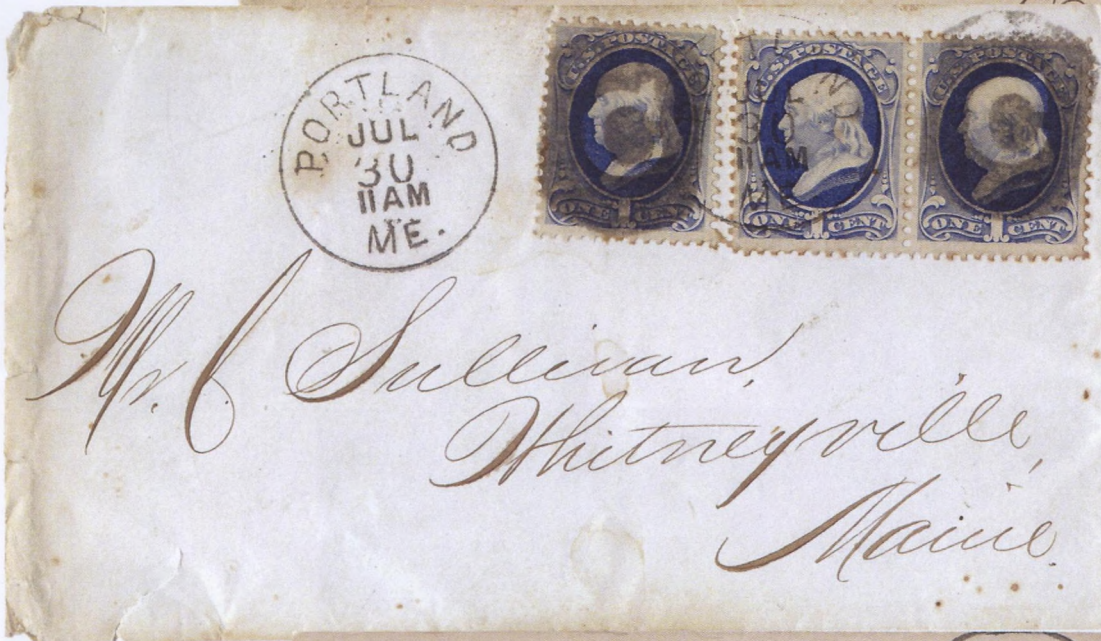 PORTLAND
JUL
30
11 AM
ME.
U.S. POSTAGE
ONE 1 CENT
U.S. POSTAGE
ONE 1 CENT
U.S. POSTAGE
ONE 1 CENT
11 AM
Mr. C Sullivan,
Whitneyville,
Maine.